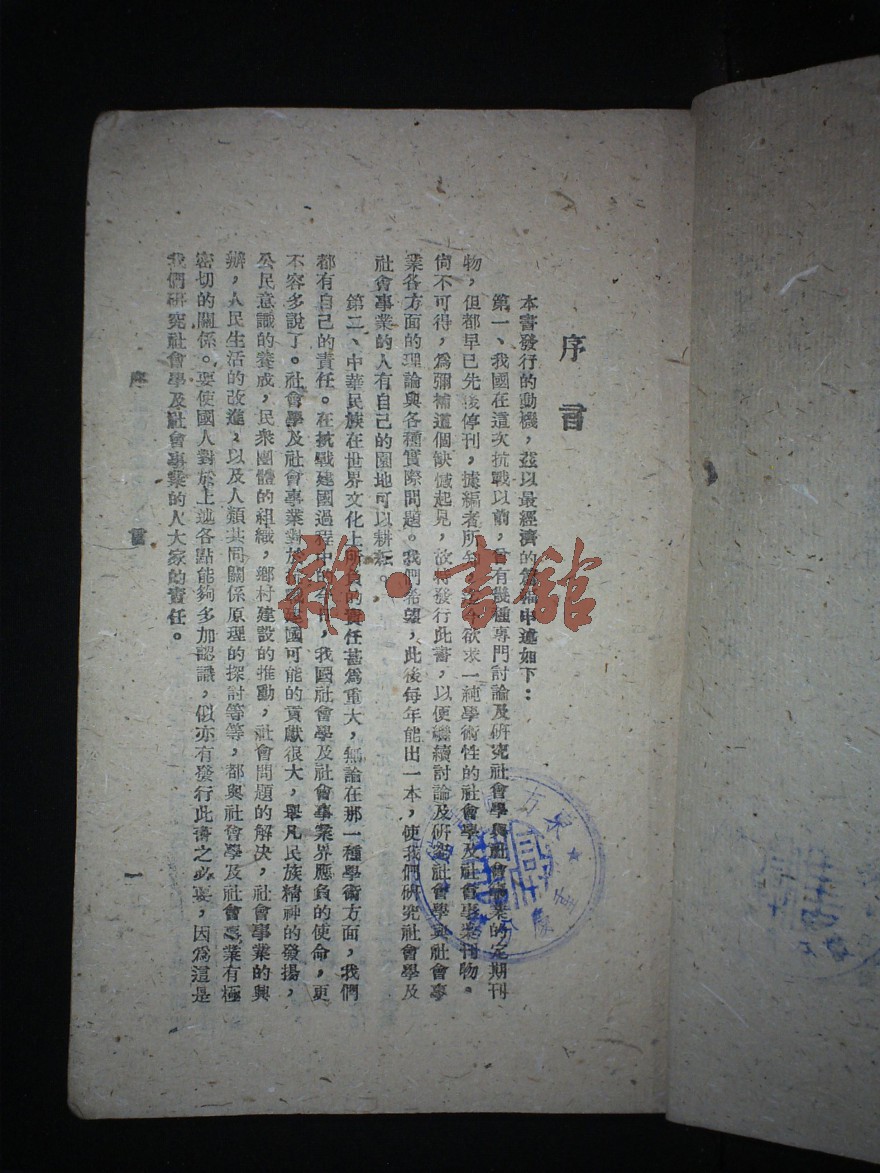 序言
本書發行的動機，茲以最經濟的篇幅申述如下：
第一、我國在這次抗戰以前，曾有幾種專門討論及研究社會學與社會事業的定期刊
物，但都早已先後停刊，據編者所知，迄今欲求一純學術性的社會學及社會事業刊物。
尙不可得，爲彌補這個缺憾起見，故特發行此書，以便繼續討論及研究社會學與社會事
業各方面的理論與各種實際問題。我們希望，此後每年能出一本，使我們研究社會學及
社會事業的人有自己的園地可以耕耘。
第二、中華民族在世界文化上所負的責任甚爲重大，無論在那一種學術方面，我們
都有自己的責任。在抗戰建國過程中的今日，我國社會學及社會事業界應負的使命，更
不容多說了。社會學及社會事業對於抗戰建國可能的貢獻很大，舉凡民族精神的發揚，
公民意識的養成，民衆團體的組織，鄉村建設的推動，社會問題的解決，社會事業的興
辦，人民生活的改進，以及人類共同關係原理的探討等等，都與社會學及社會事業有極
密切的關係。要使國人對於上述各點能夠多加認識，似亦有發行此書之必要，因爲這是
我們研究社會學及社會事業的人大家的責任。
序言
一
雜·書館